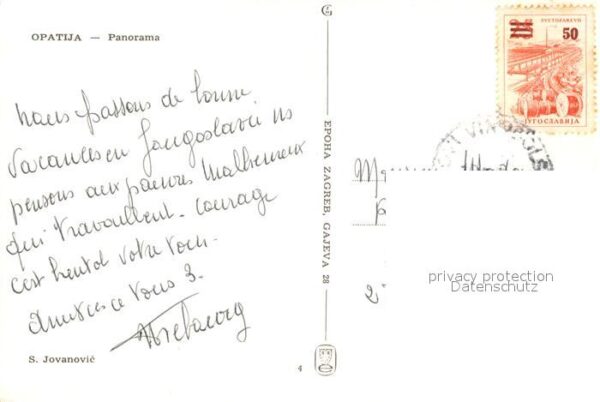 OPATIJA — Panorama
nous passons de bonne
vacances en Jougoslavie ns
pensons aux pauvres Malheureux
qui travaillent. courage
c'est bientot votre tour.
Amities a vous 3.
S. Jovanović
EPOHA ZAGREB, GAJEVA 28
4
50
JУГОСЛАВИЈА
privacy protection
Datenschutz